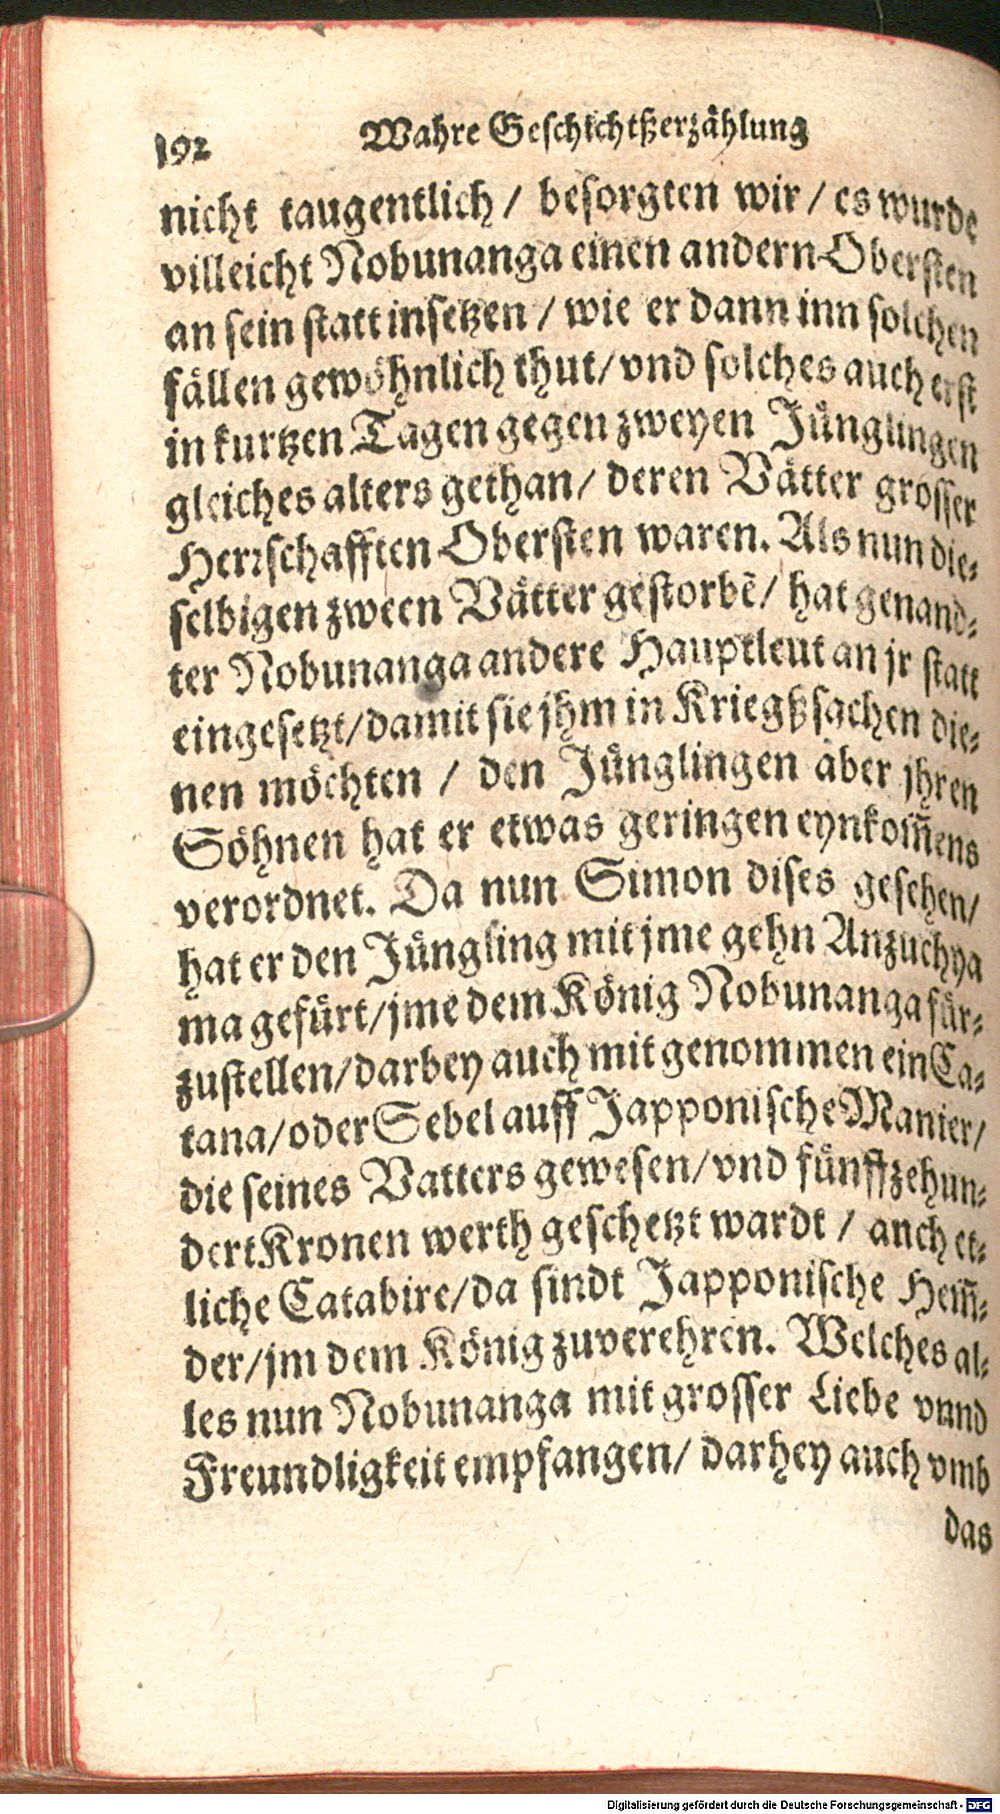 192 Wahre Geschichtßerzåhlung
nicht taugentlich / besorgten wir / es wurde
villeicht Nobunanga einen andern Obersten
an sein statt insetzen / wie er dann inn solchen
fällen gewöhnlich thut / vnd solches auch erst
in kurtzen Tagen gegen zweyen Jůnglingen
gleiches alters gethan / deren Våtter grosser
Herrschafften Obersten waren. Als nun die-
selbigen zween Våtter gestorbē / hat genand-
ter Nobunanga andere Hauptleut an jr statt
eingesetzt / damit sie jhm in Kriegßsachen die-
nen möchten / den Jůnglingen aber jhren
Söhnen hat er etwas geringen eynkom̃ens
verordnet. Da nun Simon dises gesehen /
hat er den Jůngling mit jme gehn Anzuchya
ma gefůrt / jme dem König Nobunanga fůr-
zustellen / darbey auch mit genommen ein Ca-
tana / oder Sebel auff Japponische Manier /
die seines Vatters gewesen / vnd fůnfftzehun-
dert Kronen werth geschetzt wardt / anch et-
liche Catabire / da sindt Japponische Hem̃-
der / jm dem König zuverehren. Welches al-
les nun Nobunanga mit grosser Liebe vnnd
Freundligkeit empfangen / darhey auch vmb
das
Digitalisierung gefördert durch die Deutsche Forschungsgemeinschaft - DFG